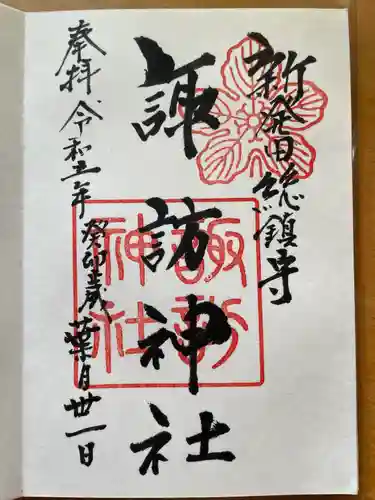 新発田総鎮守
諏訪神社
諏訪
神社
奉拝 令和五年 癸卯歳 葉月卅一日